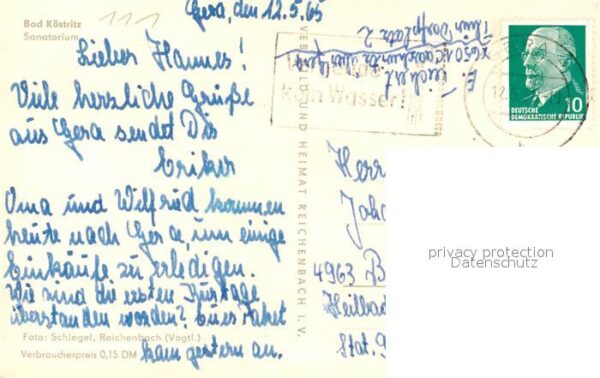 Bad Köstritz
Sanatorium
Gera, den 12.5.65
Lieber Hannes!
Viele herzliche Grüße
aus Gera sendet Dir
Erika
Oma und Wilfried kommen
heute nach Gera, um einige
Einkäufe zu erledigen.
Wie sind die ersten Kurtage
überstanden worden? Euer Paket
kam gestern an.
Foto: Schlegel, Reichenbach (Vogtl.)
Verbraucherpreis 0,15 DM
VEB BILD UND HEIMAT REICHENBACH I. V.
E.
Dorfplatz 2
kein Wasser!
12.
DEUTSCHE
DEMOKRATISCHE REPUBLIK
10
Herr
4963 B
Heilbad
Stat. 9
privacy protection
Datenschutz